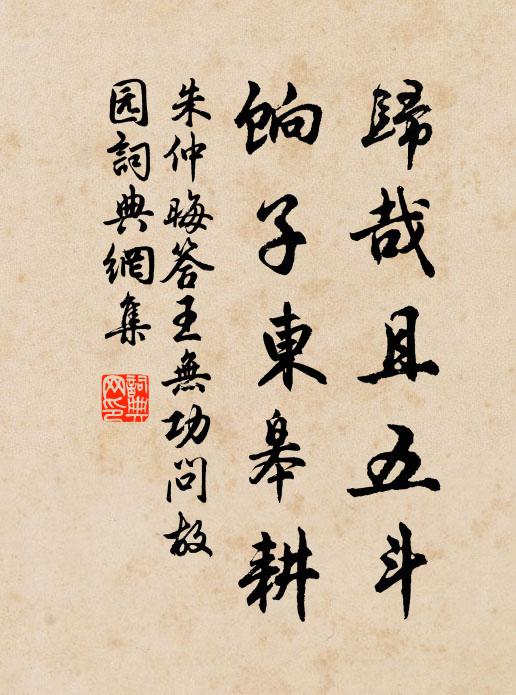 歸哉且五斗
餉子東皋耕
朱仲晦答王無功問故
园詞典網集
詞典
网印